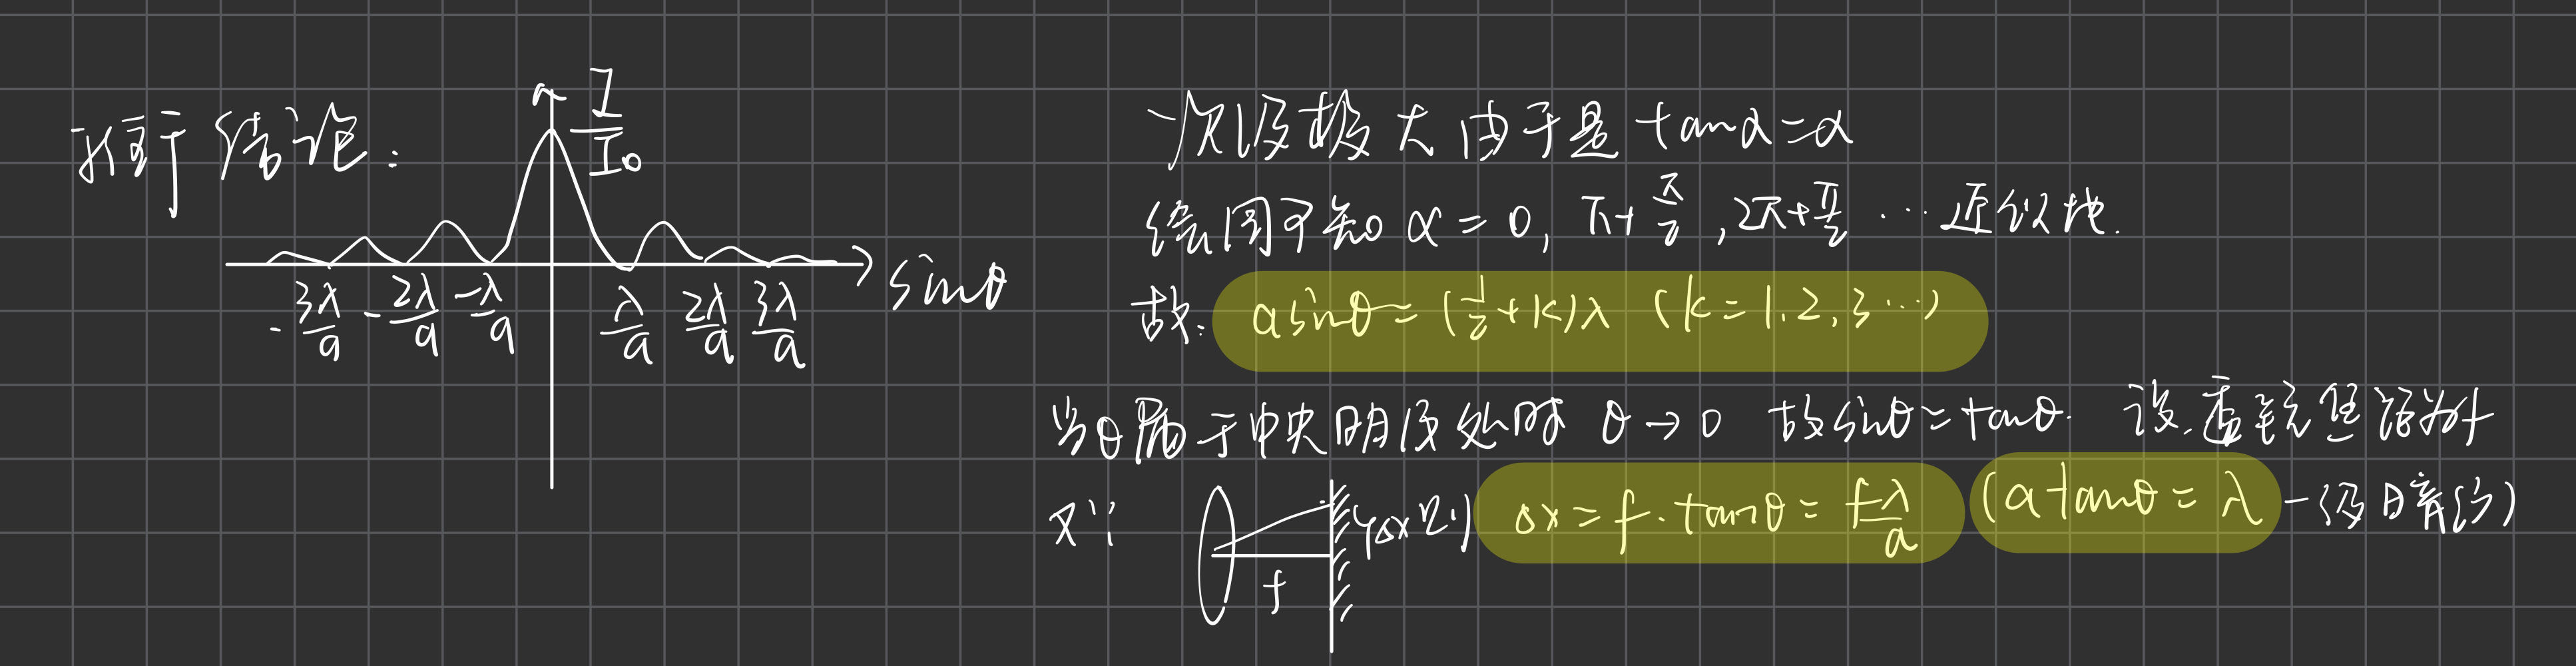 推导结论：
I/I₀
sinθ
-3λ/a -2λ/a -λ/a λ/a 2λ/a 3λ/a
次级极大由于是 tanα=α
绘图可知 α=0, π+π/2, 2π+π/2 …近似地.
故: asinθ=(1/2+k)λ (k=1.2.3…)
当θ属于中央明纹处时 θ→0 故sinθ=tanθ. 设 透镜焦距为f
又∵ f }Δx 则 Δx=f·tanθ=fλ/a (atanθ=λ 一级暗纹)